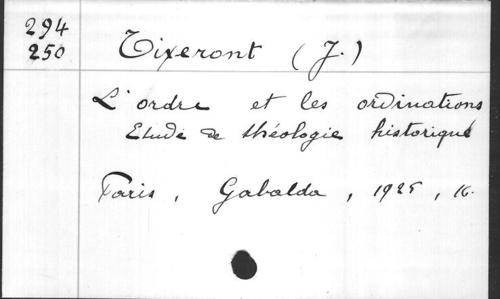 294
250
Tixeront (J.)
L'ordre et les ordinations
Etude de théologie historique
Paris, Gabalda, 1925, 16.